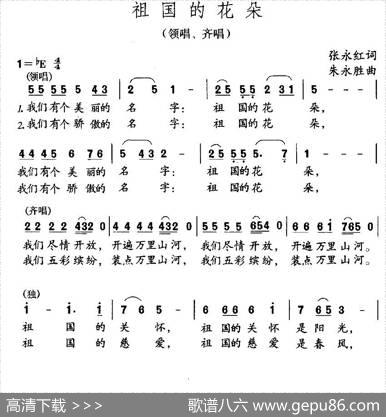 祖国的花朵
(领唱、齐唱)
张永红词
1=♭E 4/4
朱永胜曲
(领唱)
55 55 5 43 | 2 5 1 - | 25 55 2 231 | 5 - - - |
1.我们有个美丽的 名 字: 祖 国的花 朵,
2.我们有个骄傲的 名 字: 祖 国的花 朵,
44 45 6 76 | 5 43 2 - | 25 55 5. 7 | 1 - - - |
我们有个美丽的 名 字: 祖 国的花 朵,
我们有个骄傲的 名 字: 祖 国的花 朵,
(齐唱)
22 22 432 0 | 44 44 432 0 | 55 55 654 0 | 66 61 765 0 |
我们尽情开放, 开遍万里山河, 我们尽情开放, 开遍万里山河。
我们五彩缤纷, 装点万里山河, 我们五彩缤纷, 装点万里山河。
(独)
1 - 1. 1 | 7 6 - - | 66 66 1 6 | 7 65 3 - |
祖 国的关 怀, 祖国的关怀是阳光,
祖 国的慈爱, 祖国的慈爱是春风,
高清下载 >>>
歌谱八六 www.gepu86.com